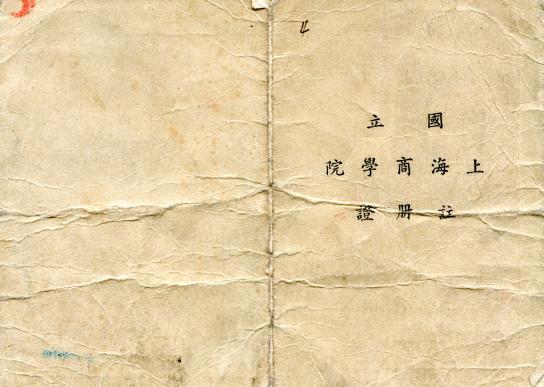 國立
上海商學院
註冊證